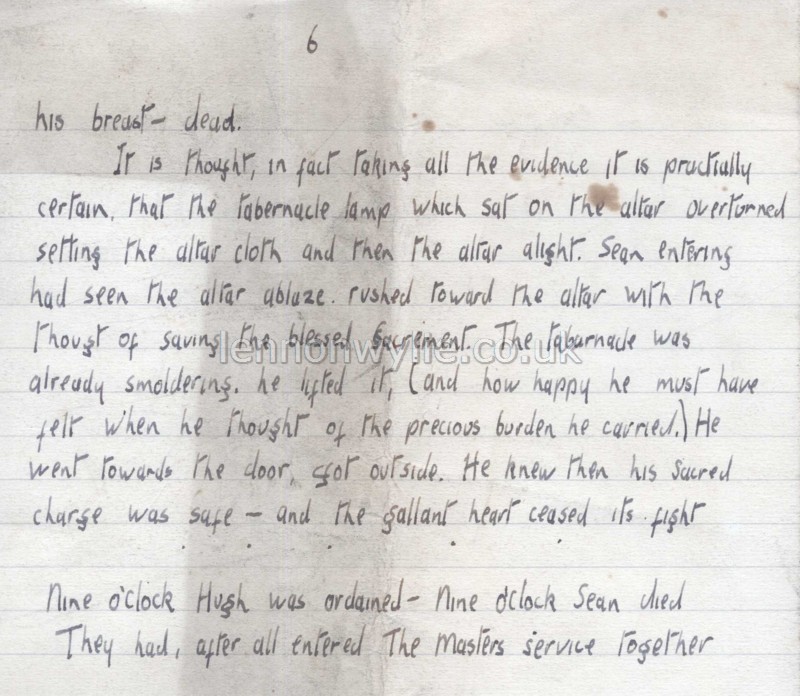 6
his breast - dead.
It is thought, in fact taking all the evidence it is practially
certain, that the tabernacle lamp which sat on the altar overturned
setting the altar cloth and then the altar alight. Sean entering
had seen the altar ablaze. rushed toward the altar with the
thougt of saving the blessed sacrement. The tabarnacle was
lennonwylie.co.uk
already smoldering. he lifted it, (and how happy he must have
felt when he thought of the precious burden he carried.) He
went towards the door, got outside. He knew then his sacred
charge was safe - and the gallant heart ceased its fight
. . . . . .
Nine o'clock Hugh was ordained - Nine o'clock Sean died
They had, after all entered The Masters service together